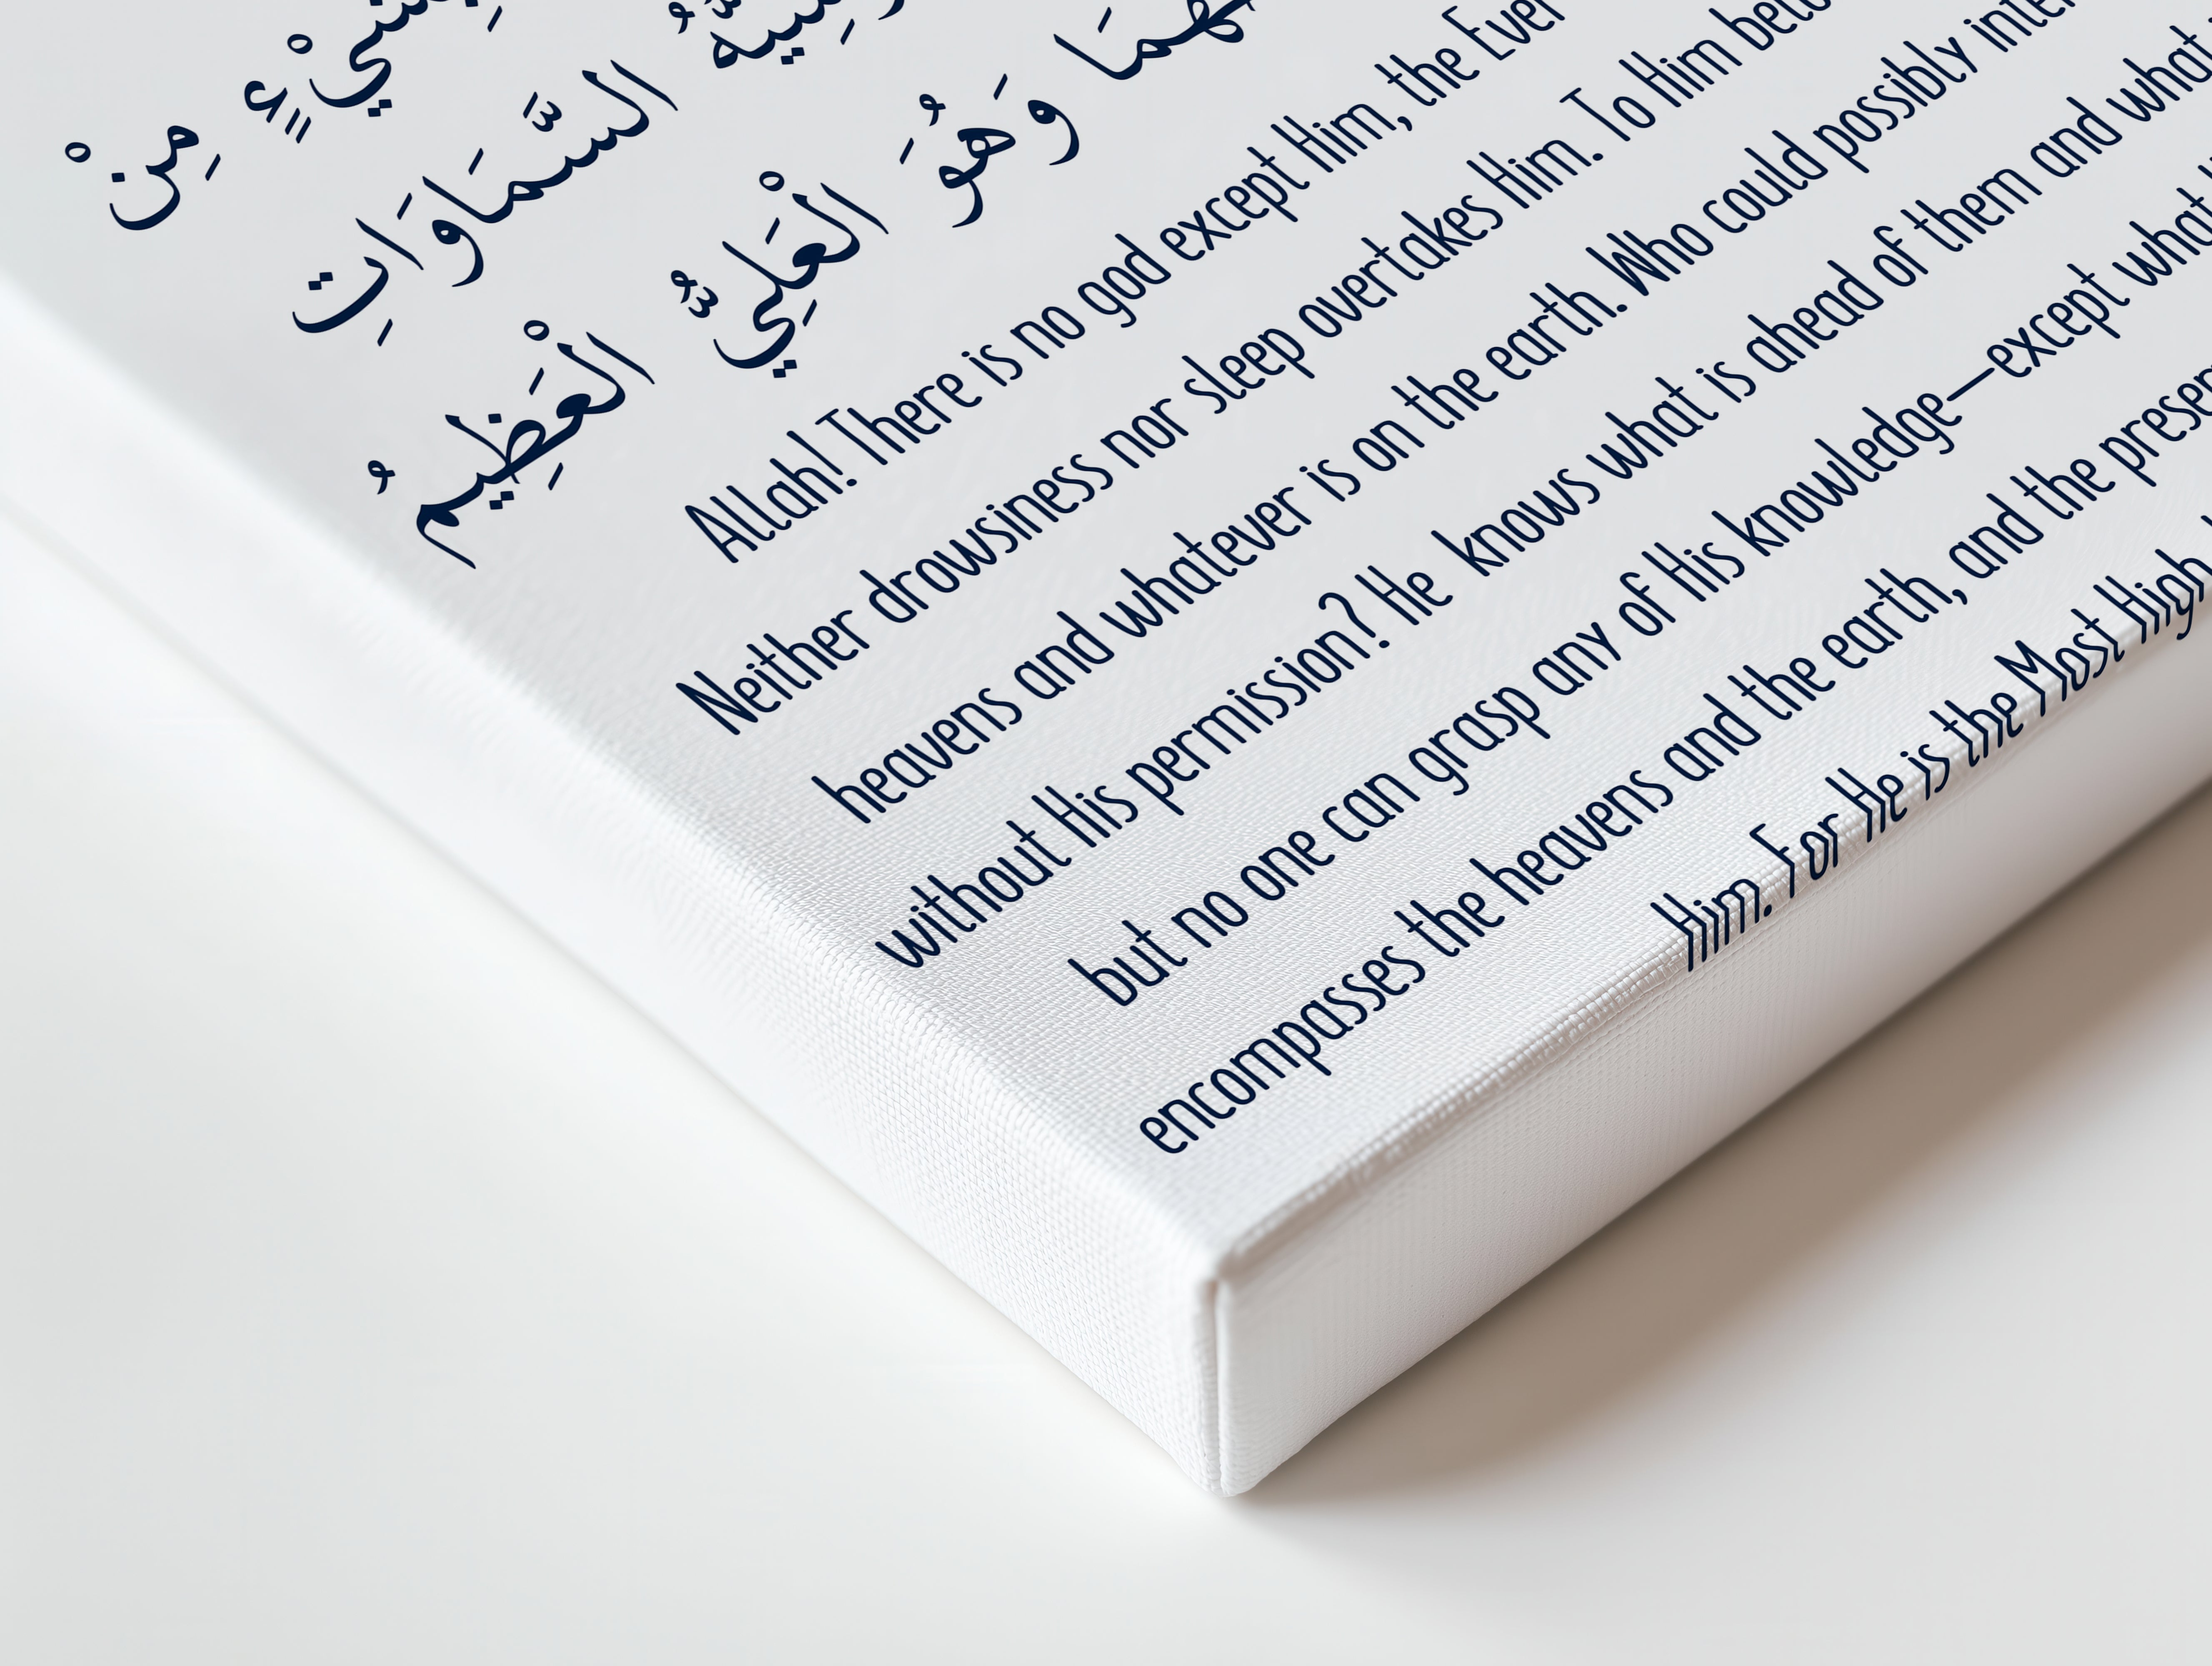 بِشَيْءٍ مِنْ
السَّمَاوَاتِ
وَهُوَ الْعَلِيُّ الْعَظِيمُ
Allah! There is no god except Him, the Ever
Neither drowsiness nor sleep overtakes Him. To Him
heavens and whatever is on the earth. Who could possibly
without His permission? He knows what is ahead of them and what
but no one can grasp any of His knowledge—except what
encompasses the heavens and the earth, and the
Him. For He is the Most High